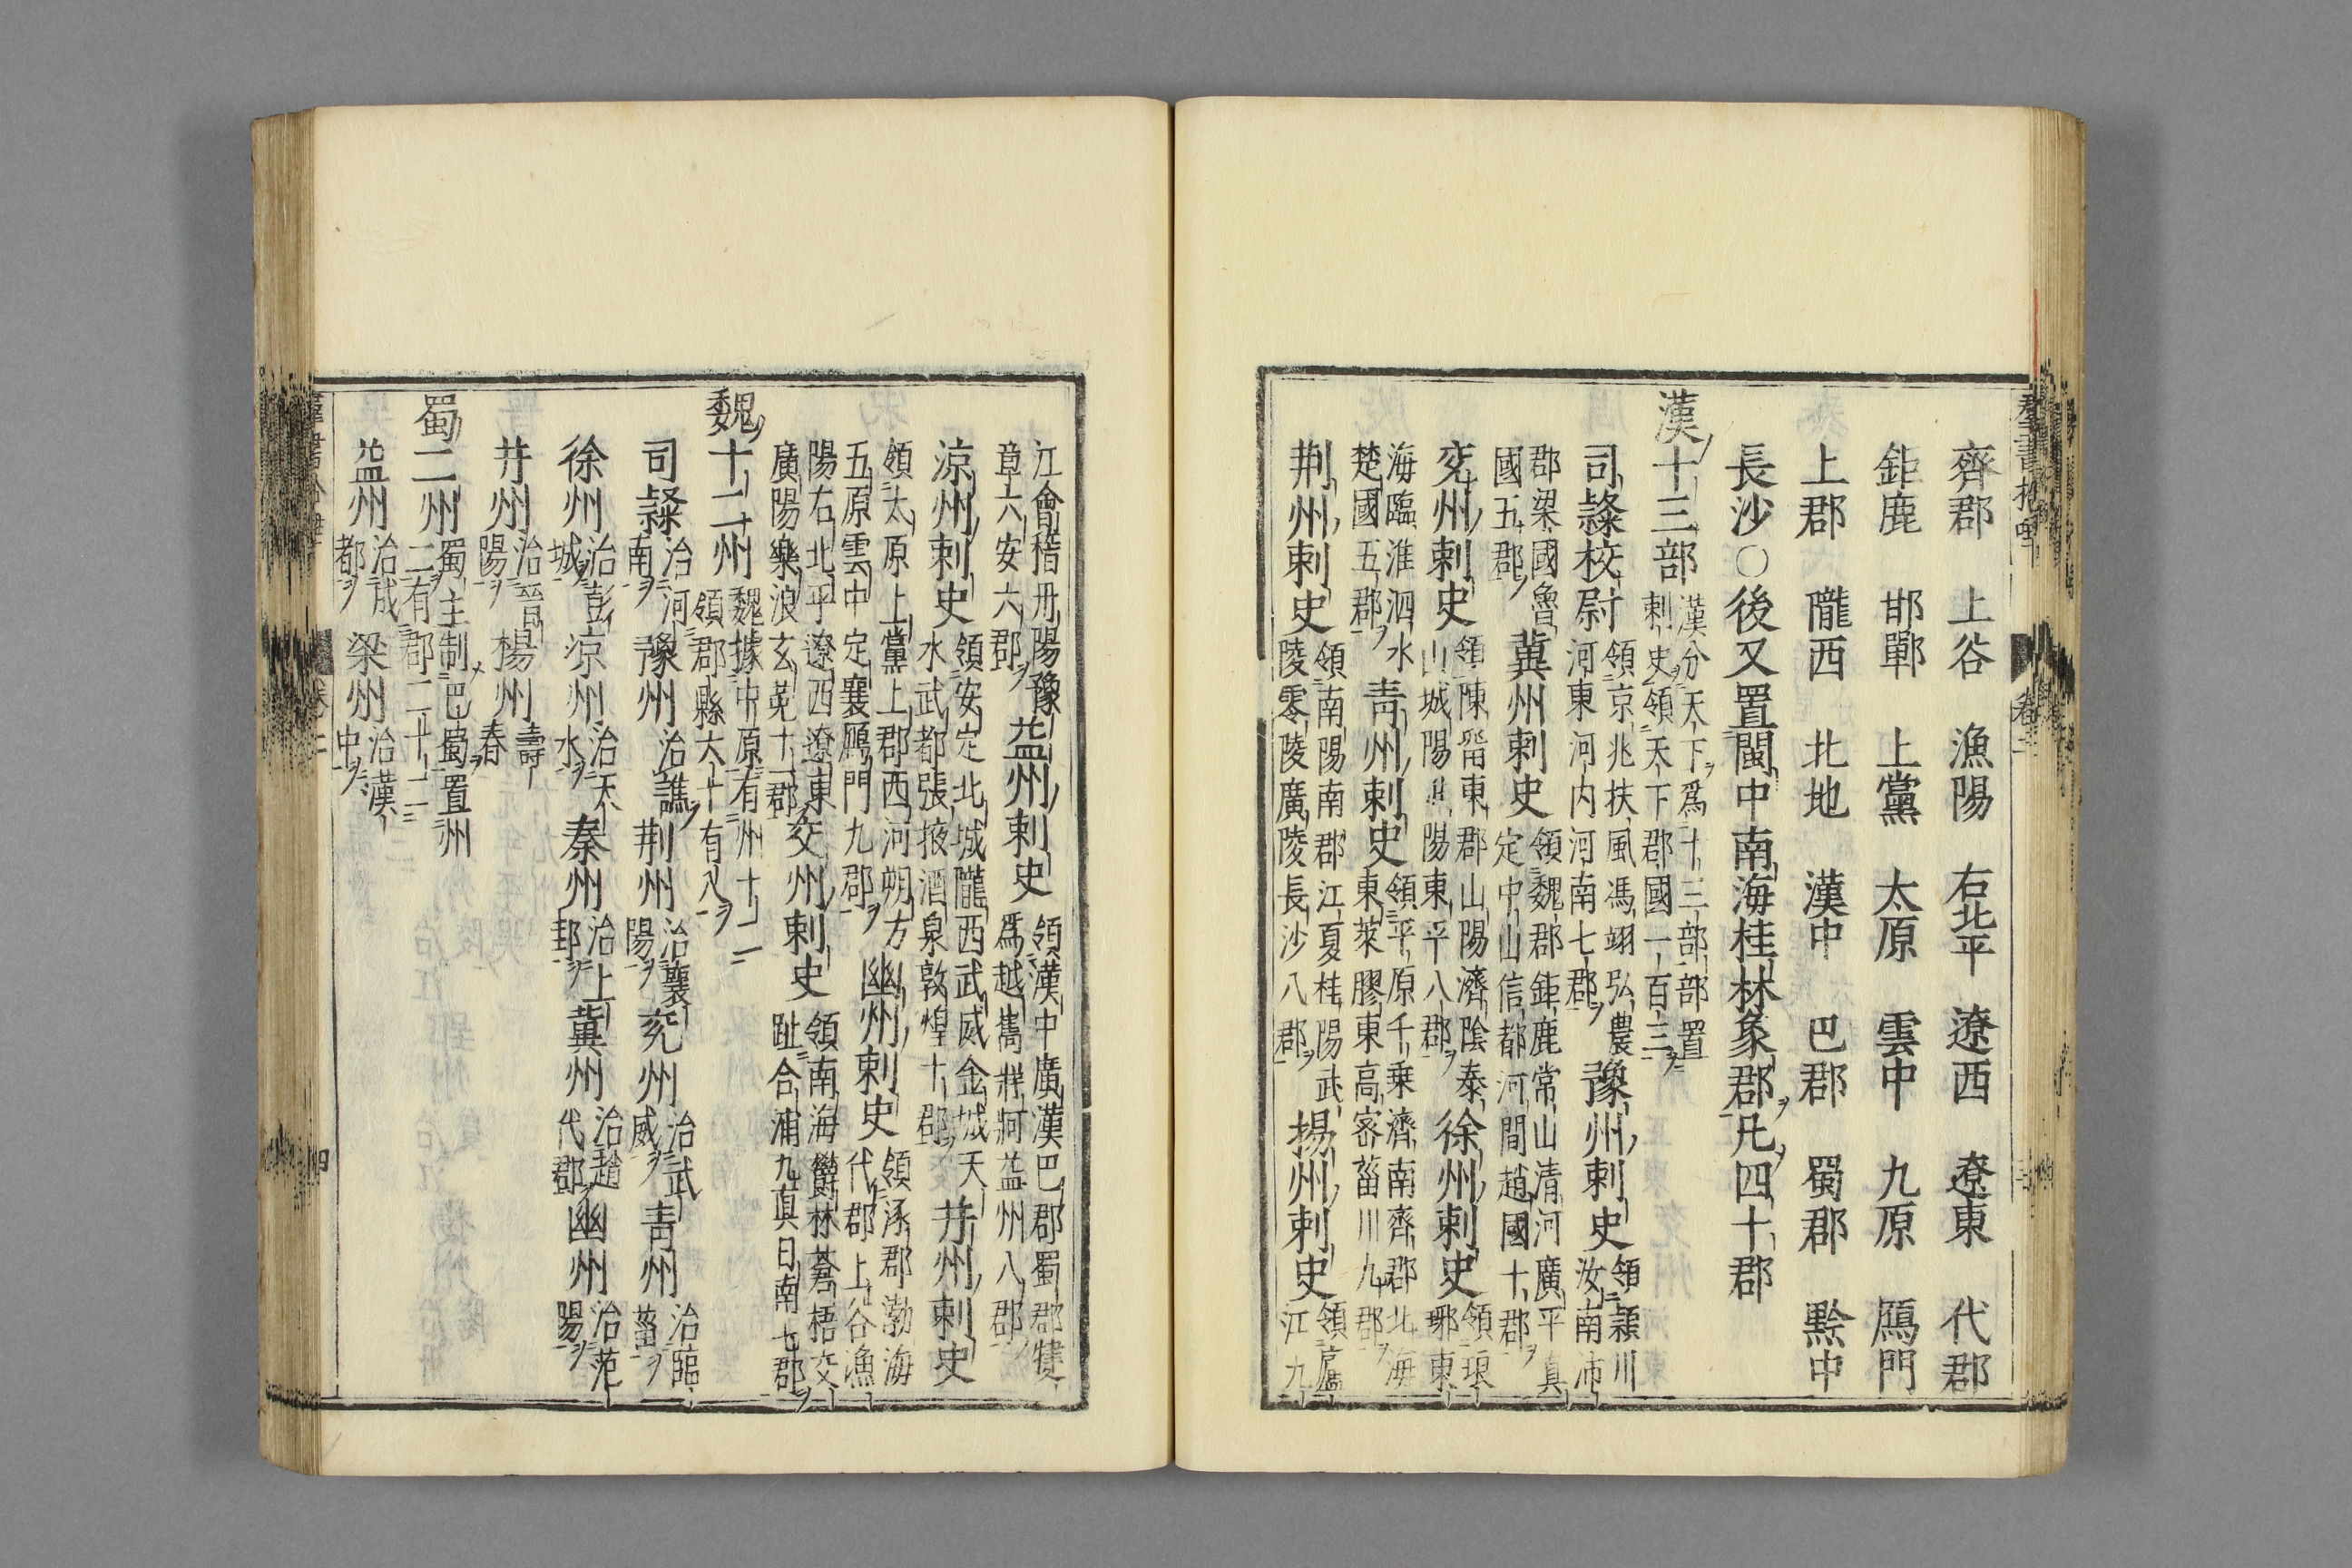 齊郡　上谷　漁陽　右北平　遼西　遼東　代郡
鉅鹿　邯鄲　上黨　太原　雲中　九原　鴈門
上郡　隴西　北地　漢中　巴郡　蜀郡　黔中
長沙〇後又置閩中南海桂林象郡凡四十郡
漢十三部漢分天下爲十三部部置刺史領天下郡國一百三
司隸校尉領京兆扶風馮翊弘農河東河内河南七郡豫州刺史領潁川汝南沛
郡梁國魯國五郡冀州刺史領魏郡鉅鹿常山清河廣平真定中山信都河間趙國十郡
兗州刺史領陳留東郡山陽濟陰泰山城陽東平八郡徐州刺史領琅琊東
海臨淮泗水楚國五郡青州刺史領平原千乗濟南齊郡北海東萊膠東高密菑川九郡
荆州刺史領南陽南郡江夏桂陽武陵零陵廣陵長沙八郡揚州刺史領廬江九
江會稽丹陽豫章六安六郡益州刺史領漢中廣漢巴郡蜀郡犍爲越嶲牂牁益州八郡
涼州刺史領安定北城隴西武威金城天水武都張掖酒泉敦煌十郡并州刺史
領太原上黨上郡西河朔方五原雲中定襄鴈門九郡幽州刺史領涿郡渤海代郡上谷漁
陽右北平遼西遼東廣陽樂浪玄菟十一郡交州刺史領南海鬱林蒼梧交趾合浦九真日南七郡
魏十二州魏據中原有州十二領郡縣六十有八
司隸治河南豫州治譙荆州治襄陽兗州治武威青州治臨菑
徐州治彭城涼州治天水秦州治上邽冀州治趙代郡幽州治范陽
并州治晉陽楊州壽春
蜀二州蜀主制巴蜀置州二有郡二十二
益州治成都梁州治漢中